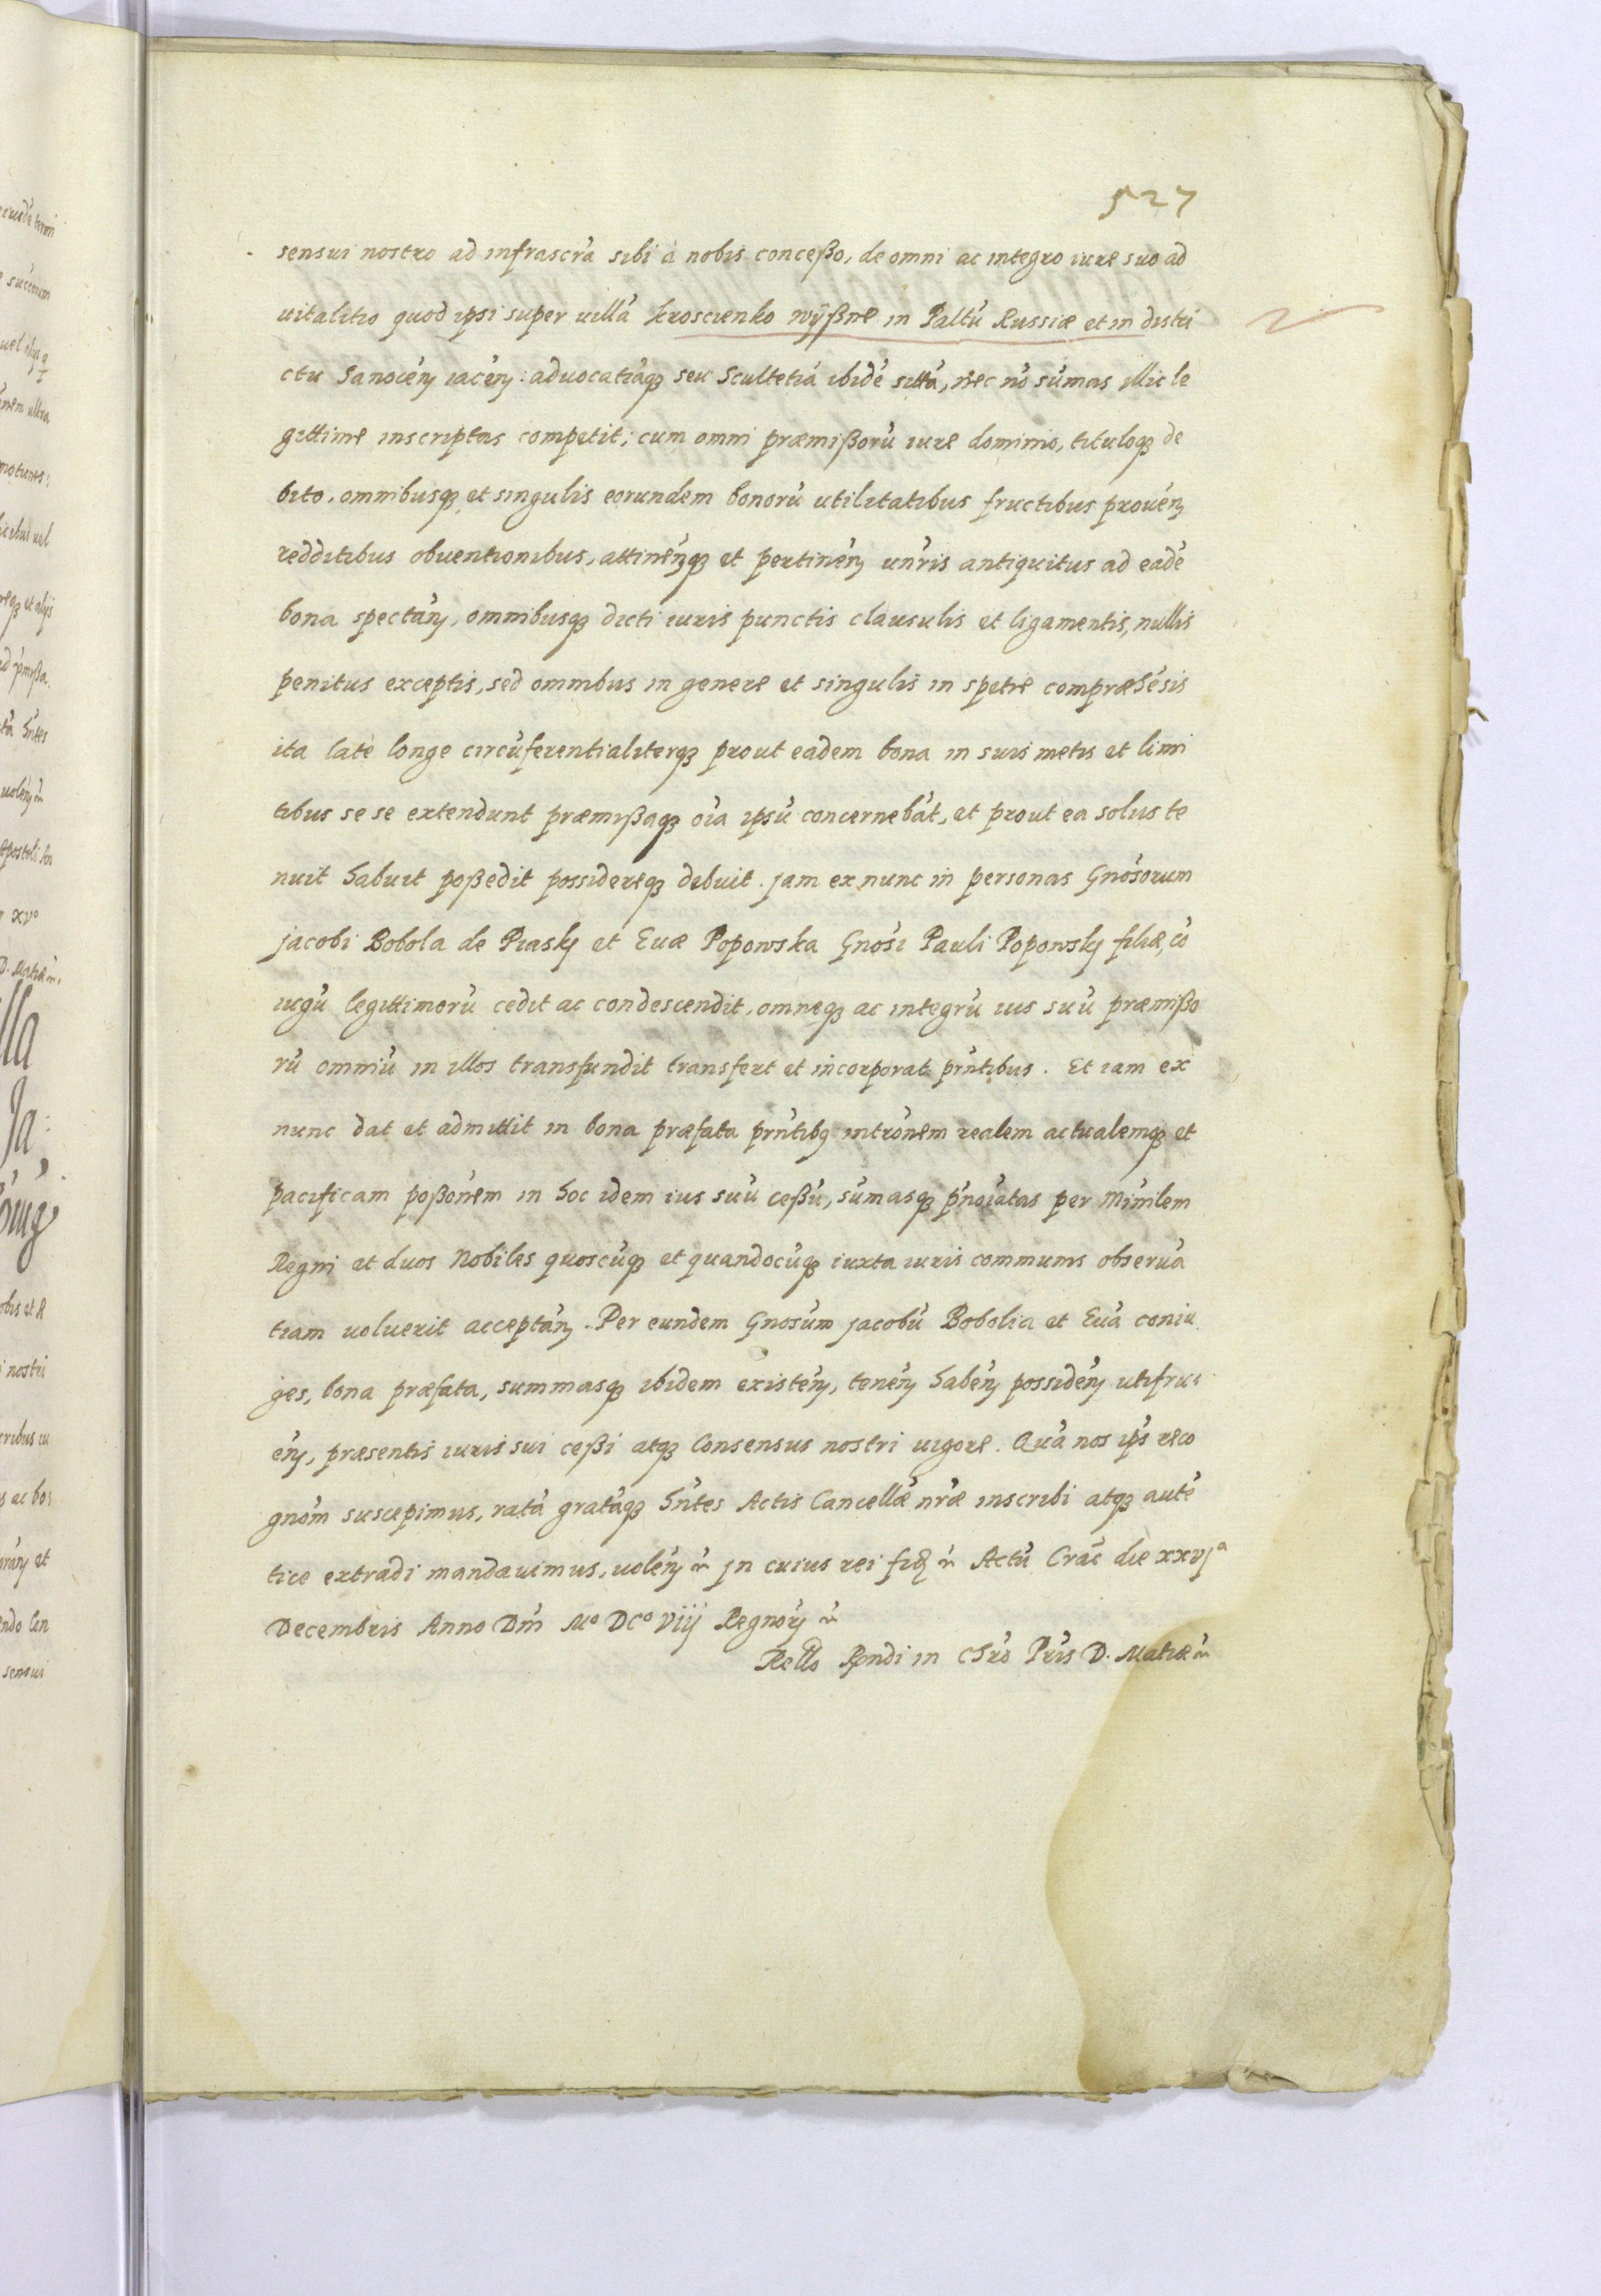 527
sensui nostro ad infrascr'a sibi à nobis conceßo, de omni ac integro iure suo ad
uitalitio quod ipsi super uillá Kroscienko wÿßne in Paltú Russiæ et in distri
ctu Sanocén iacén: aduocatiáqꝫ seu Scultetiá ibidé sittá, nec nó súmas illic le
gittime inscriptas competit; cum omni præmißorú iure dominio, tituloqꝫ de
bito, omnibusqꝫ et singulis eorundem bonorú utilitatibus fructibus prouén
redditibus obuentionibus, attinénqꝫ et pertinén un'ris antiquitus ad eadé
bona spectán, omnibusqꝫ dicti iuris punctis clausulis et ligamentis, nullis
penitus exceptis, sed omnibus in genere et singulis in spetie compræhésis
ita latè longe circúferentialiterqꝫ prout eadem bona in suis metis et limi
tibus se se extendunt præmißaqꝫ oía ipsú concernebát, et prout ea solus te
nuit habuit poßedit possidereqꝫ debuit. jam ex nunc in personas Gnósorum
jacobi Bobola de Piasky et Euæ Popowska Gnósi Pauli Popowsky filiæ, có
iugú legittimorú cedit ac condescendit, omneqꝫ ac integrú ius suú præmißo
rú omniú in illos transfundit transfert et incorporat prńtibus. Et iam ex
nunc dat et admittit in bona præfata prńtibꝯ intrónem realem actualemqꝫ et
pacificam poßónem in hoc idem ius suú ceßú, súmasqꝫ p'noíatas per Mińlem
Regni et duos Nobiles quoscúqꝫ et quandocúqꝫ iuxta iuris communis obseruá
tiam uoluerit acceptán. Per eundem Gnosúm jacobú Bobolia et Euá coniu
ges, bona præfata, summasqꝫ ibidem existén, tenén habén possidén utifru
én, præsentis iuris sui ceßi atqꝫ Consensus nostri uigore. Quá nos ip's reco
gnóm suscepimus, ratá gratáqꝫ hńtes Actis Cancellæ nr'æ inscribi atqꝫ auté
tice extradi mandauimus, uolén jn cuius rei Actú Crác die xxvjª
Decembris Anno Dm̃ Mº DCº viij Regnorꝫ
Rello Rndi in Chró Pr'is D. Matiæ